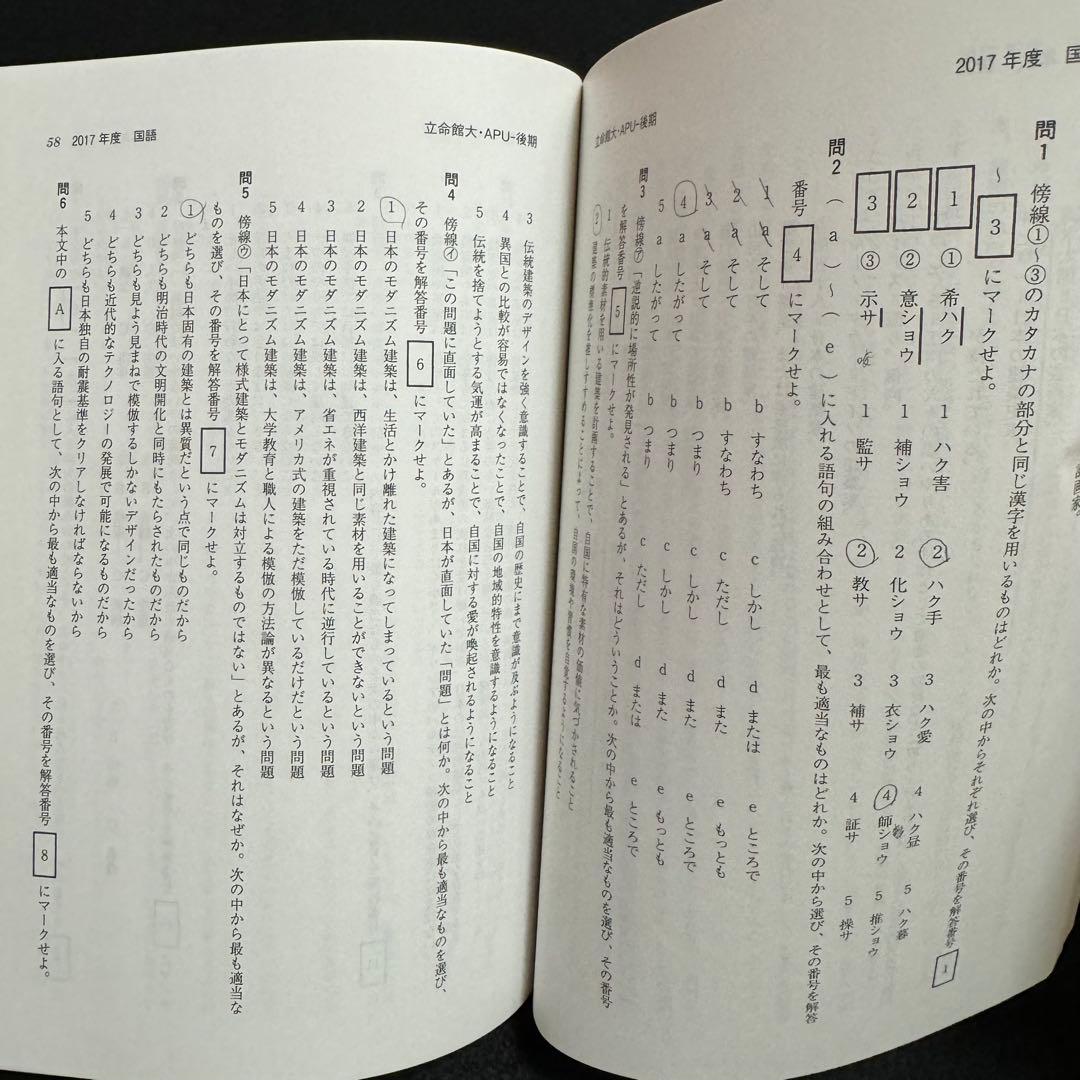 2017年度 国
立命館大・APU-後期
問1 傍線①〜③のカタカナの部分と同じ漢字を用いるものはどれか。次の中からそれぞれ選び、その番号を解答番号 1
〜 3 にマークせよ。
1 ① 希ハク 1 ハク害 2 ハク手 3 ハク愛 4 ハク昼 5 ハク暮
2 ② 意ショウ 1 補ショウ 2 化ショウ 3 衣ショウ 4 師ショウ 5 推ショウ
3 ③ 示サ 1 監サ 2 教サ 3 補サ 4 証サ 5 操サ
問2 (a)〜(e)に入れる語句の組み合わせとして、最も適当なものはどれか。次の中から選び、その番号を解答
番号 4 にマークせよ。
1 a そして b すなわち c しかし d または e ところで
2 a そして b すなわち c ただし d また e もっとも
3 a そして b つまり c しかし d また e もっとも
4 a したがって b つまり c しかし d また e ところで
5 a したがって b つまり c ただし d または e もっとも
問3 傍線㋐「逆説的に場所性が発見される」とあるが、それはどういうことか。次の中から最も適当なものを選び、その番号
を解答番号 5 にマークせよ。
1 伝統的素材を用いる建築を計画することで、自国に特有な素材の価値に気づかされること
2 建築の標準化を推しすすめることによって、自国の環境や習慣を自覚するようになること
58 2017年度 国語
立命館大・APU-後期
3 伝統建築のデザインを強く意識することで、自国の歴史にまで意識が及ぶようになること
4 異国との比較が容易ではなくなったことで、自国の地域的特性を意識するようになること
5 伝統を捨てようとする気運が高まることで、自国に対する愛が喚起されるようになること
問4 傍線㋑「この問題に直面していた」とあるが、日本が直面していた「問題」とは何か。次の中から最も適当なものを選び、
その番号を解答番号 6 にマークせよ。
1 日本のモダニズム建築は、生活とかけ離れた建築になってしまっているという問題
2 日本のモダニズム建築は、西洋建築と同じ素材を用いることができないという問題
3 日本のモダニズム建築は、省エネが重視されている時代に逆行しているという問題
4 日本のモダニズム建築は、アメリカ式の建築をただ模倣しているだけだという問題
5 日本のモダニズム建築は、大学教育と職人による模倣の方法論が異なるという問題
問5 傍線㋒「日本にとって様式建築とモダニズムは対立するものではない」とあるが、それはなぜか。次の中から最も適当な
ものを選び、その番号を解答番号 7 にマークせよ。
1 どちらも日本固有の建築とは異質だという点で同じものだから
2 どちらも明治時代の文明開化と同時にもたらされたものだから
3 どちらも見よう見まねで模倣するしかないデザインだったから
4 どちらも近代的なテクノロジーの発展で可能になるものだから
5 どちらも日本独自の耐震基準をクリアしなければならないから
問6 本文中の A に入る語句として、次の中から最も適当なものを選び、その番号を解答番号 8 にマークせよ。